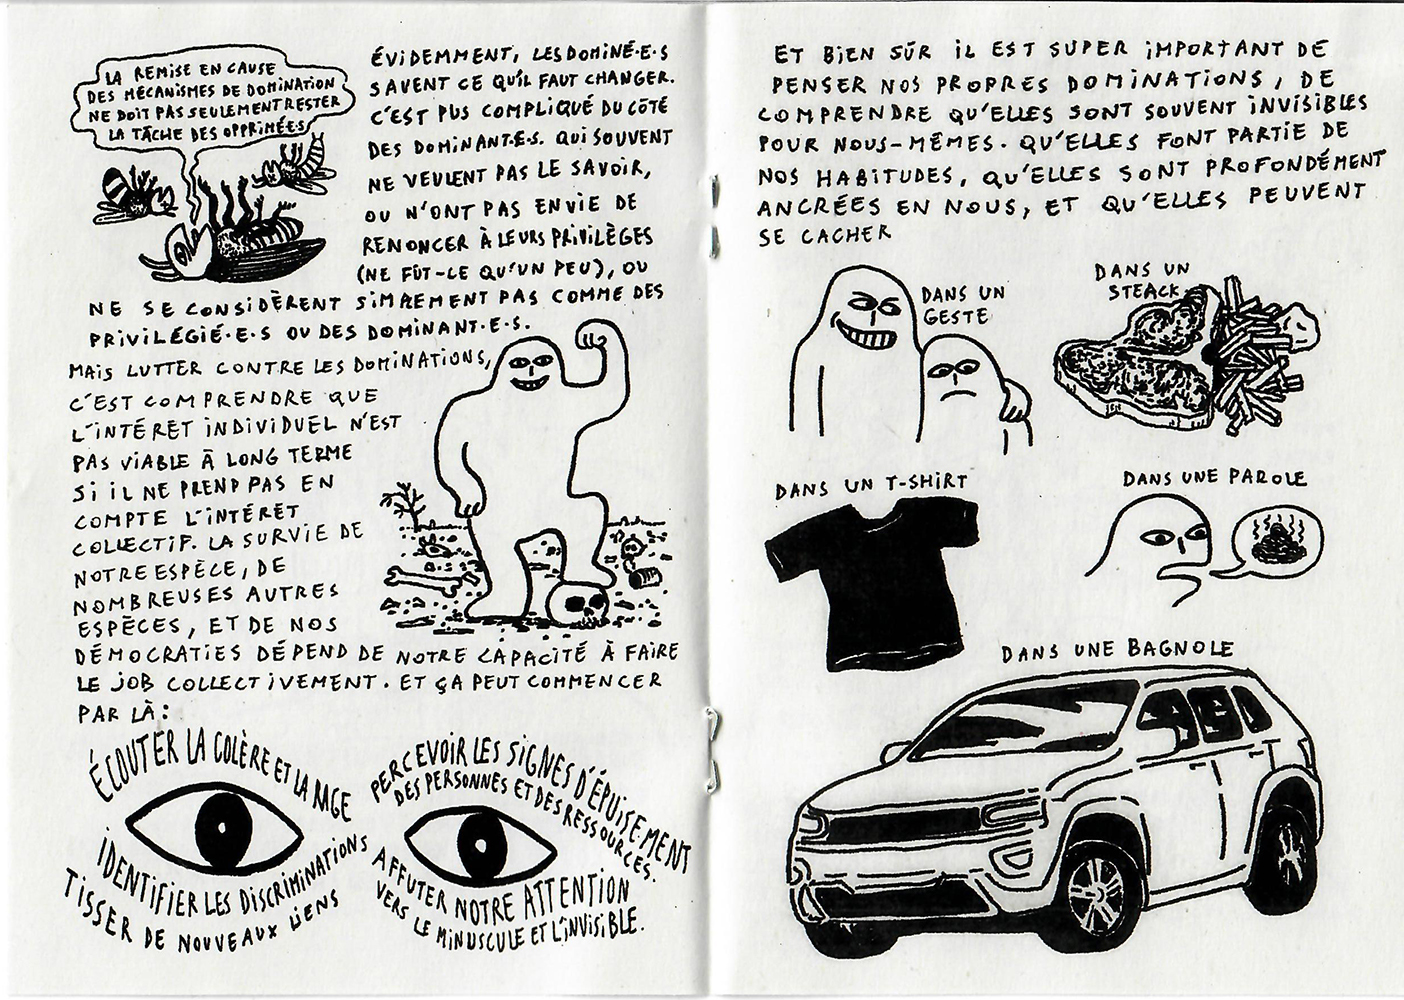 LA REMISE EN CAUSE
DES MÉCANISMES DE DOMINATION
NE DOIT PAS SEULEMENT RESTER
LA TÂCHE DES OPPRIMÉ·E·S
ÉVIDEMMENT, LES DOMINÉ·E·S
SAVENT CE QU'IL FAUT CHANGER.
C'EST PUS COMPLIQUÉ DU CÔTÉ
DES DOMINANT·E·S. QUI SOUVENT
NE VEULENT PAS LE SAVOIR,
OU N'ONT PAS ENVIE DE
RENONCER À LEURS PRIVILÈGES
(NE FÛT-CE QU'UN PEU), OU
NE SE CONSIDÈRENT SIMPLEMENT PAS COMME DES
PRIVILÉGIÉ·E·S OU DES DOMINANT·E·S.
MAIS LUTTER CONTRE LES DOMINATIONS,
C'EST COMPRENDRE QUE
L'INTÉRÊT INDIVIDUEL N'EST
PAS VIABLE À LONG TERME
SI IL NE PREND PAS EN
COMPTE L'INTÉRÊT
COLLECTIF. LA SURVIE DE
NOTRE ESPÈCE, DE
NOMBREUSES AUTRES
ESPÈCES, ET DE NOS
DÉMOCRATIES DÉPEND DE NOTRE CAPACITÉ À FAIRE
LE JOB COLLECTIVEMENT. ET ÇA PEUT COMMENCER
PAR LÀ :
ÉCOUTER LA COLÈRE ET LA RAGE
IDENTIFIER LES DISCRIMINATIONS
TISSER DE NOUVEAUX LIENS
PERCEVOIR LES SIGNES D'ÉPUISEMENT
DES PERSONNES ET DES RESSOURCES.
AFFUTER NOTRE ATTENTION
VERS LE MINUSCULE ET L'INVISIBLE.
ET BIEN SÛR IL EST SUPER IMPORTANT DE
PENSER NOS PROPRES DOMINATIONS, DE
COMPRENDRE QU'ELLES SONT SOUVENT INVISIBLES
POUR NOUS-MÊMES. QU'ELLES FONT PARTIE DE
NOS HABITUDES, QU'ELLES SONT PROFONDÉMENT
ANCRÉES EN NOUS, ET QU'ELLES PEUVENT
SE CACHER
DANS UN
GESTE
DANS UN
STEACK
DANS UN T-SHIRT
DANS UNE PAROLE
DANS UNE BAGNOLE